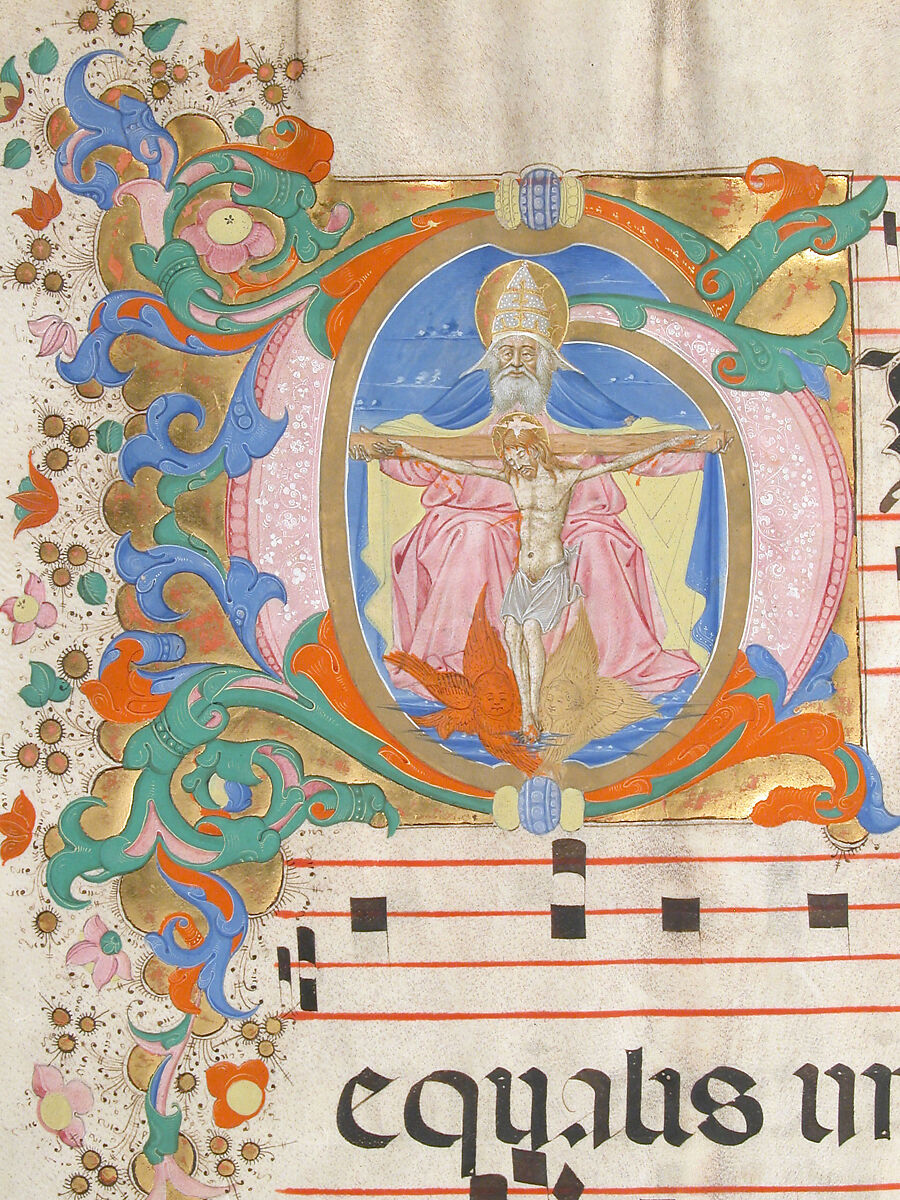 G
equalis un